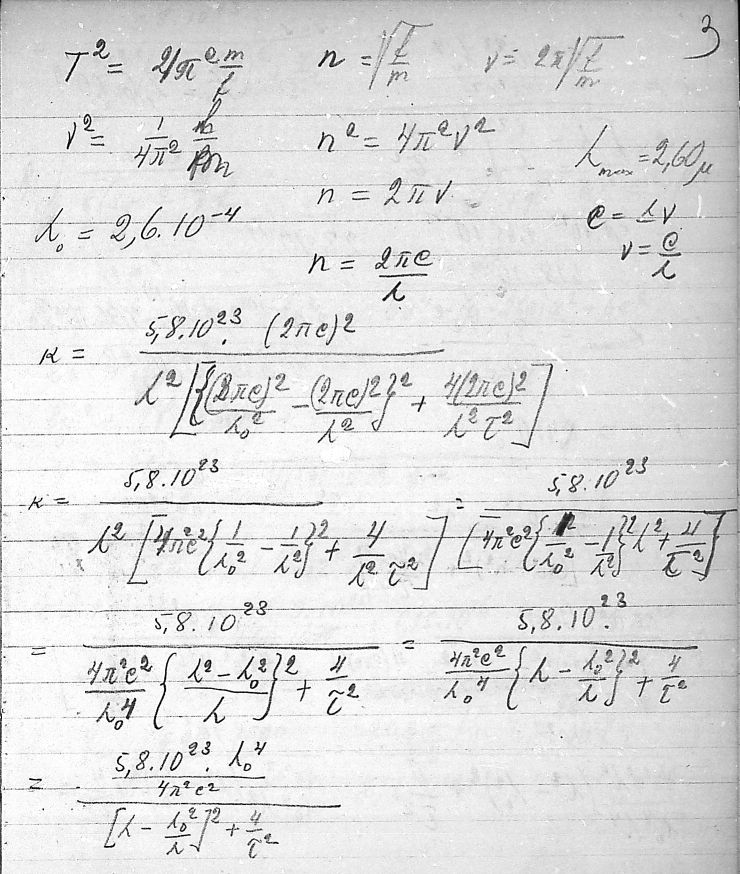 3
T² = 4π² m/f    n = √(f/m)    ν = 2π√(f/m)
ν² = 1/4π² f/m    n² = 4π²ν²    λ_max = 2,60 μ
λ₀ = 2,6.10⁻⁴    n = 2πν    c = λν
n = 2πc/λ    ν = c/λ
κ = 5,8.10²³. (2πc)² / λ²[{(2πc)²/λ₀² − (2πc)²/λ²}² + 4(2πc)²/λ²τ²]
κ = 5,8.10²³ / λ²[4π²c²{1/λ₀² − 1/λ²}² + 4/λ²τ²] = 5,8.10²³ / [4π²c²{1/λ₀² − 1/λ²}²λ² + 4/τ²]
= 5,8.10²³ / 4π²c²/λ₀⁴ {λ² − λ₀²/λ}² + 4/τ² = 5,8.10²³. / 4π²c²/λ₀⁴ {λ − λ₀²/λ}² + 4/τ²
= 5,8.10²³. λ₀⁴ / 4π²c² / [λ − λ₀²/λ]² + 4/τ²